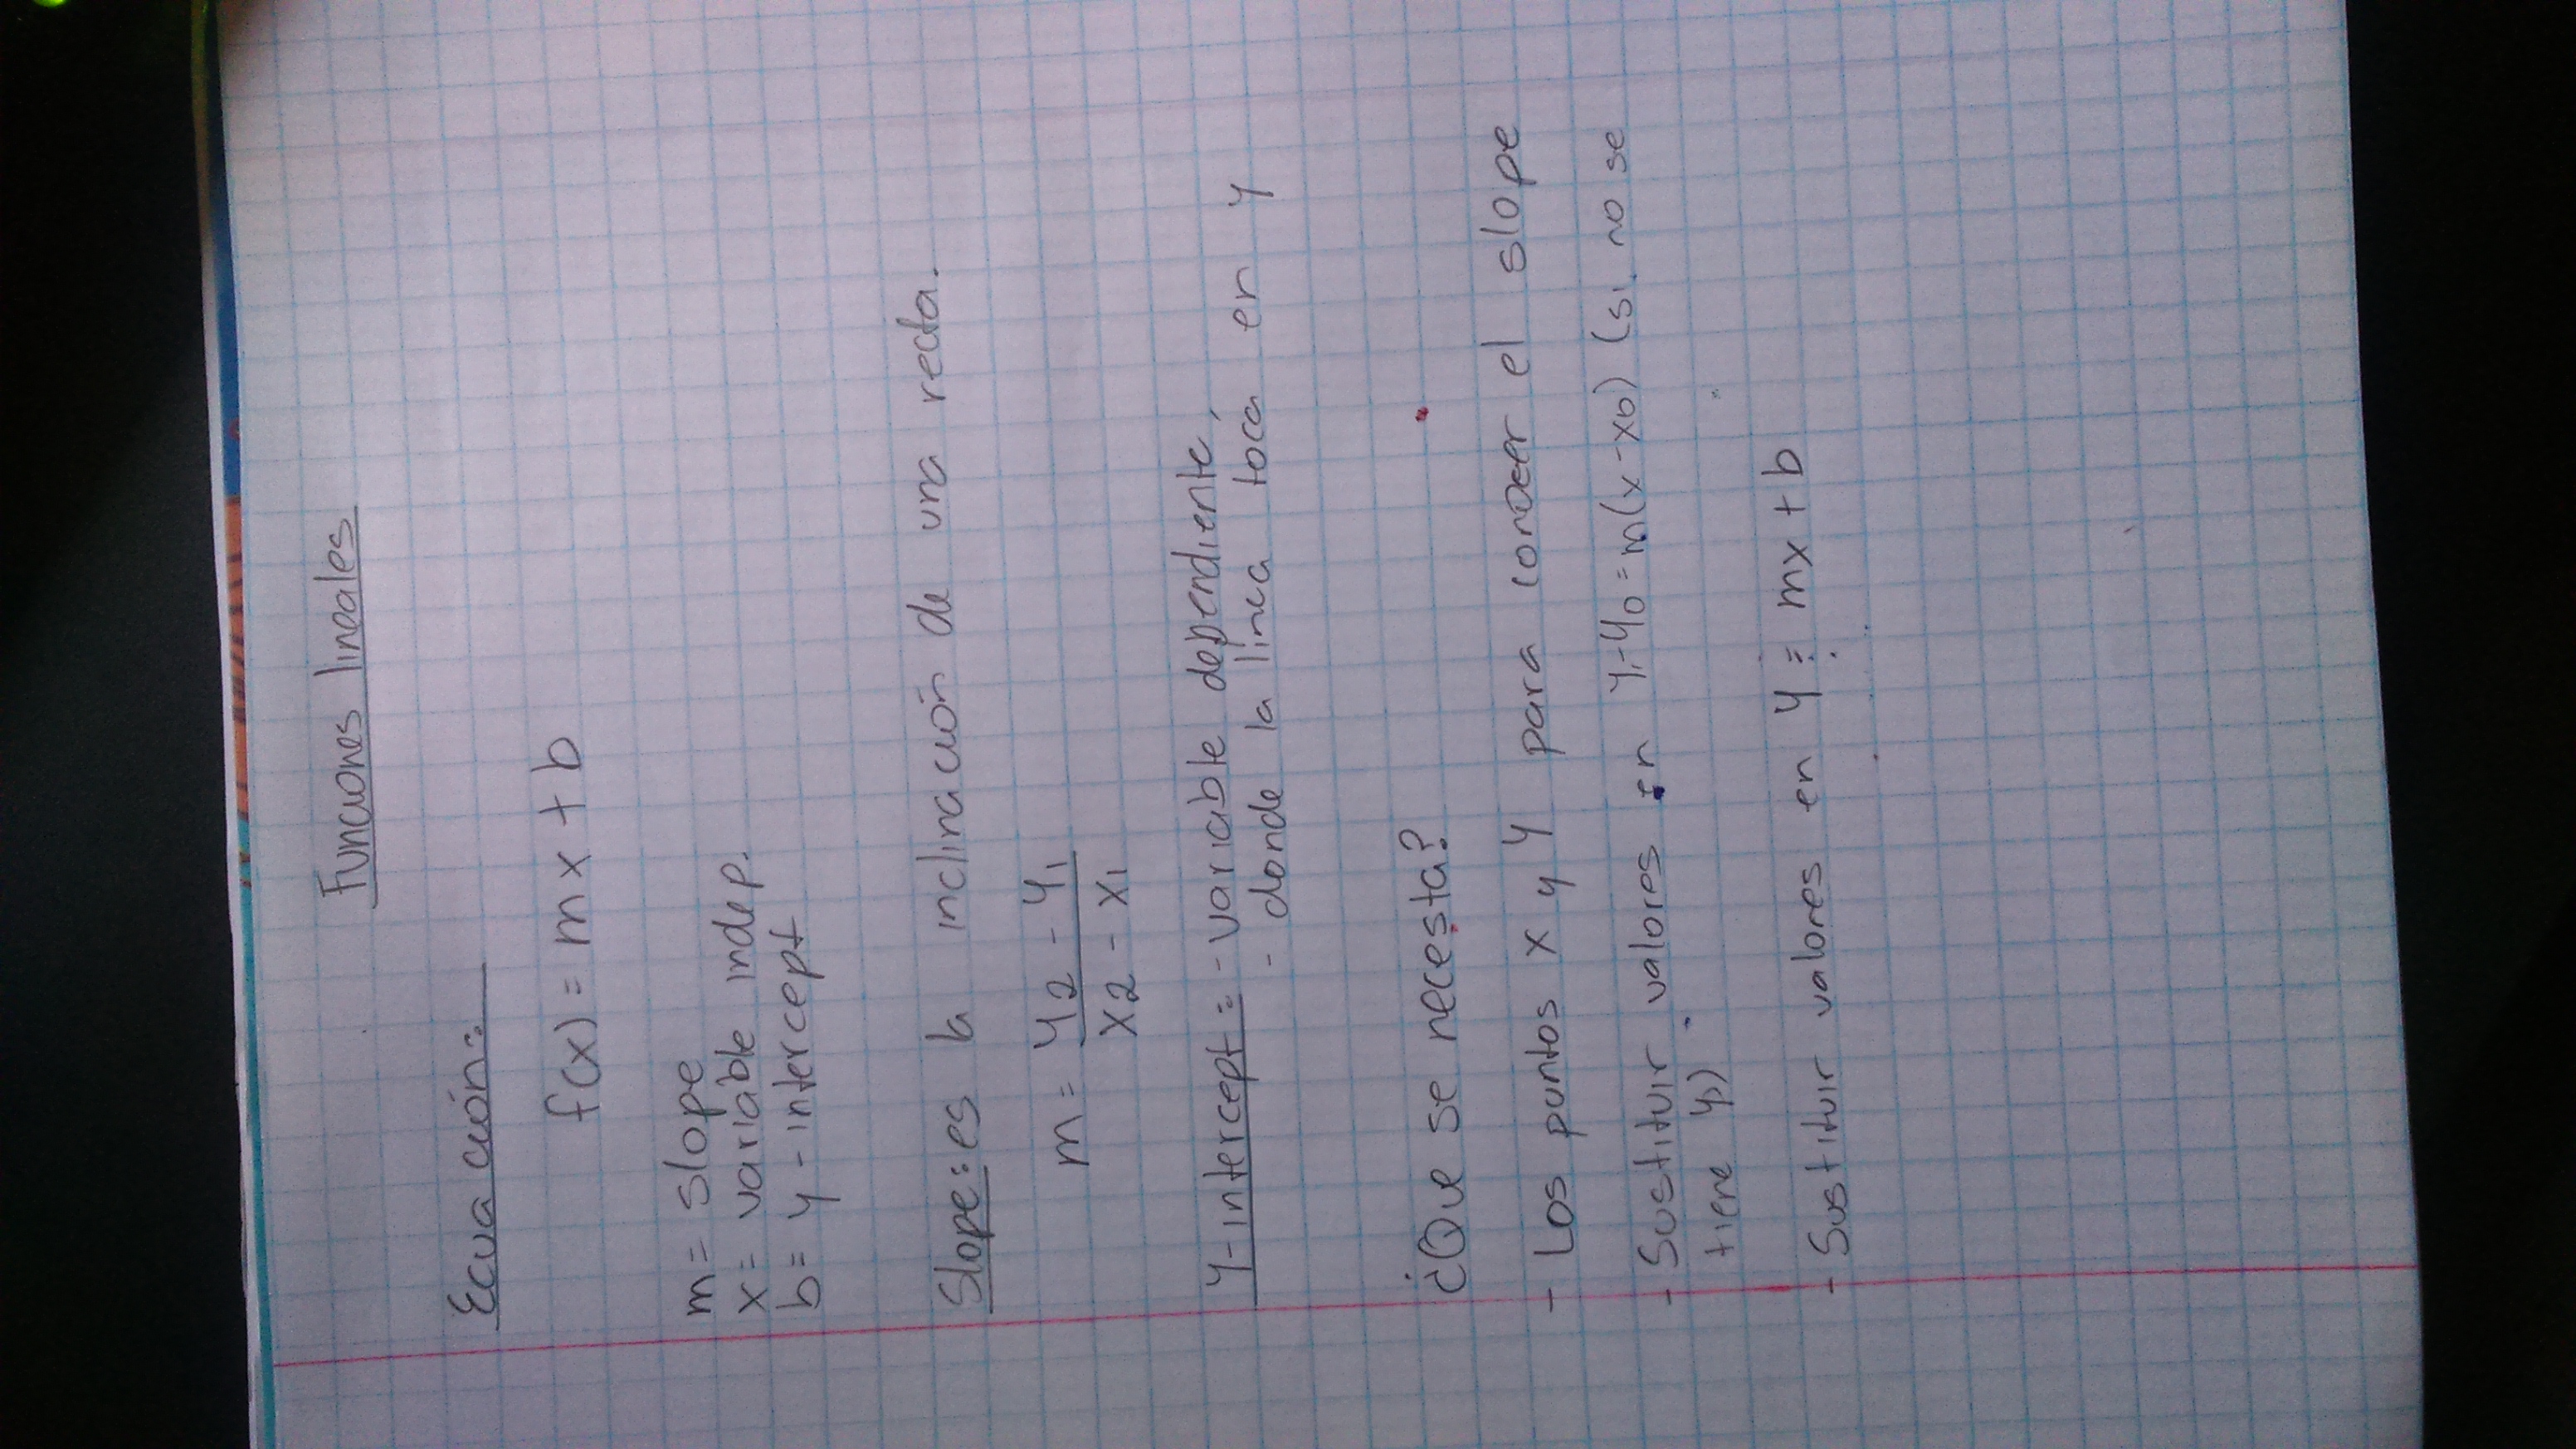 Funciones lineales
Ecuación:
f(x) = mx + b
m = slope
x = variable indep.
b = y-intercept
Slope: es la inclinación de una recta.
m = y2 - y1
x2 - x1
y-intercept: - variable dependiente,
- donde la linea toca en y
¿Que se necesta?
- Los puntos x y y para conocer el slope
- Sustituir valores en y1-y0 = m(x-x0) (si no se
tiene y)
- Sustituir valores en y = mx + b